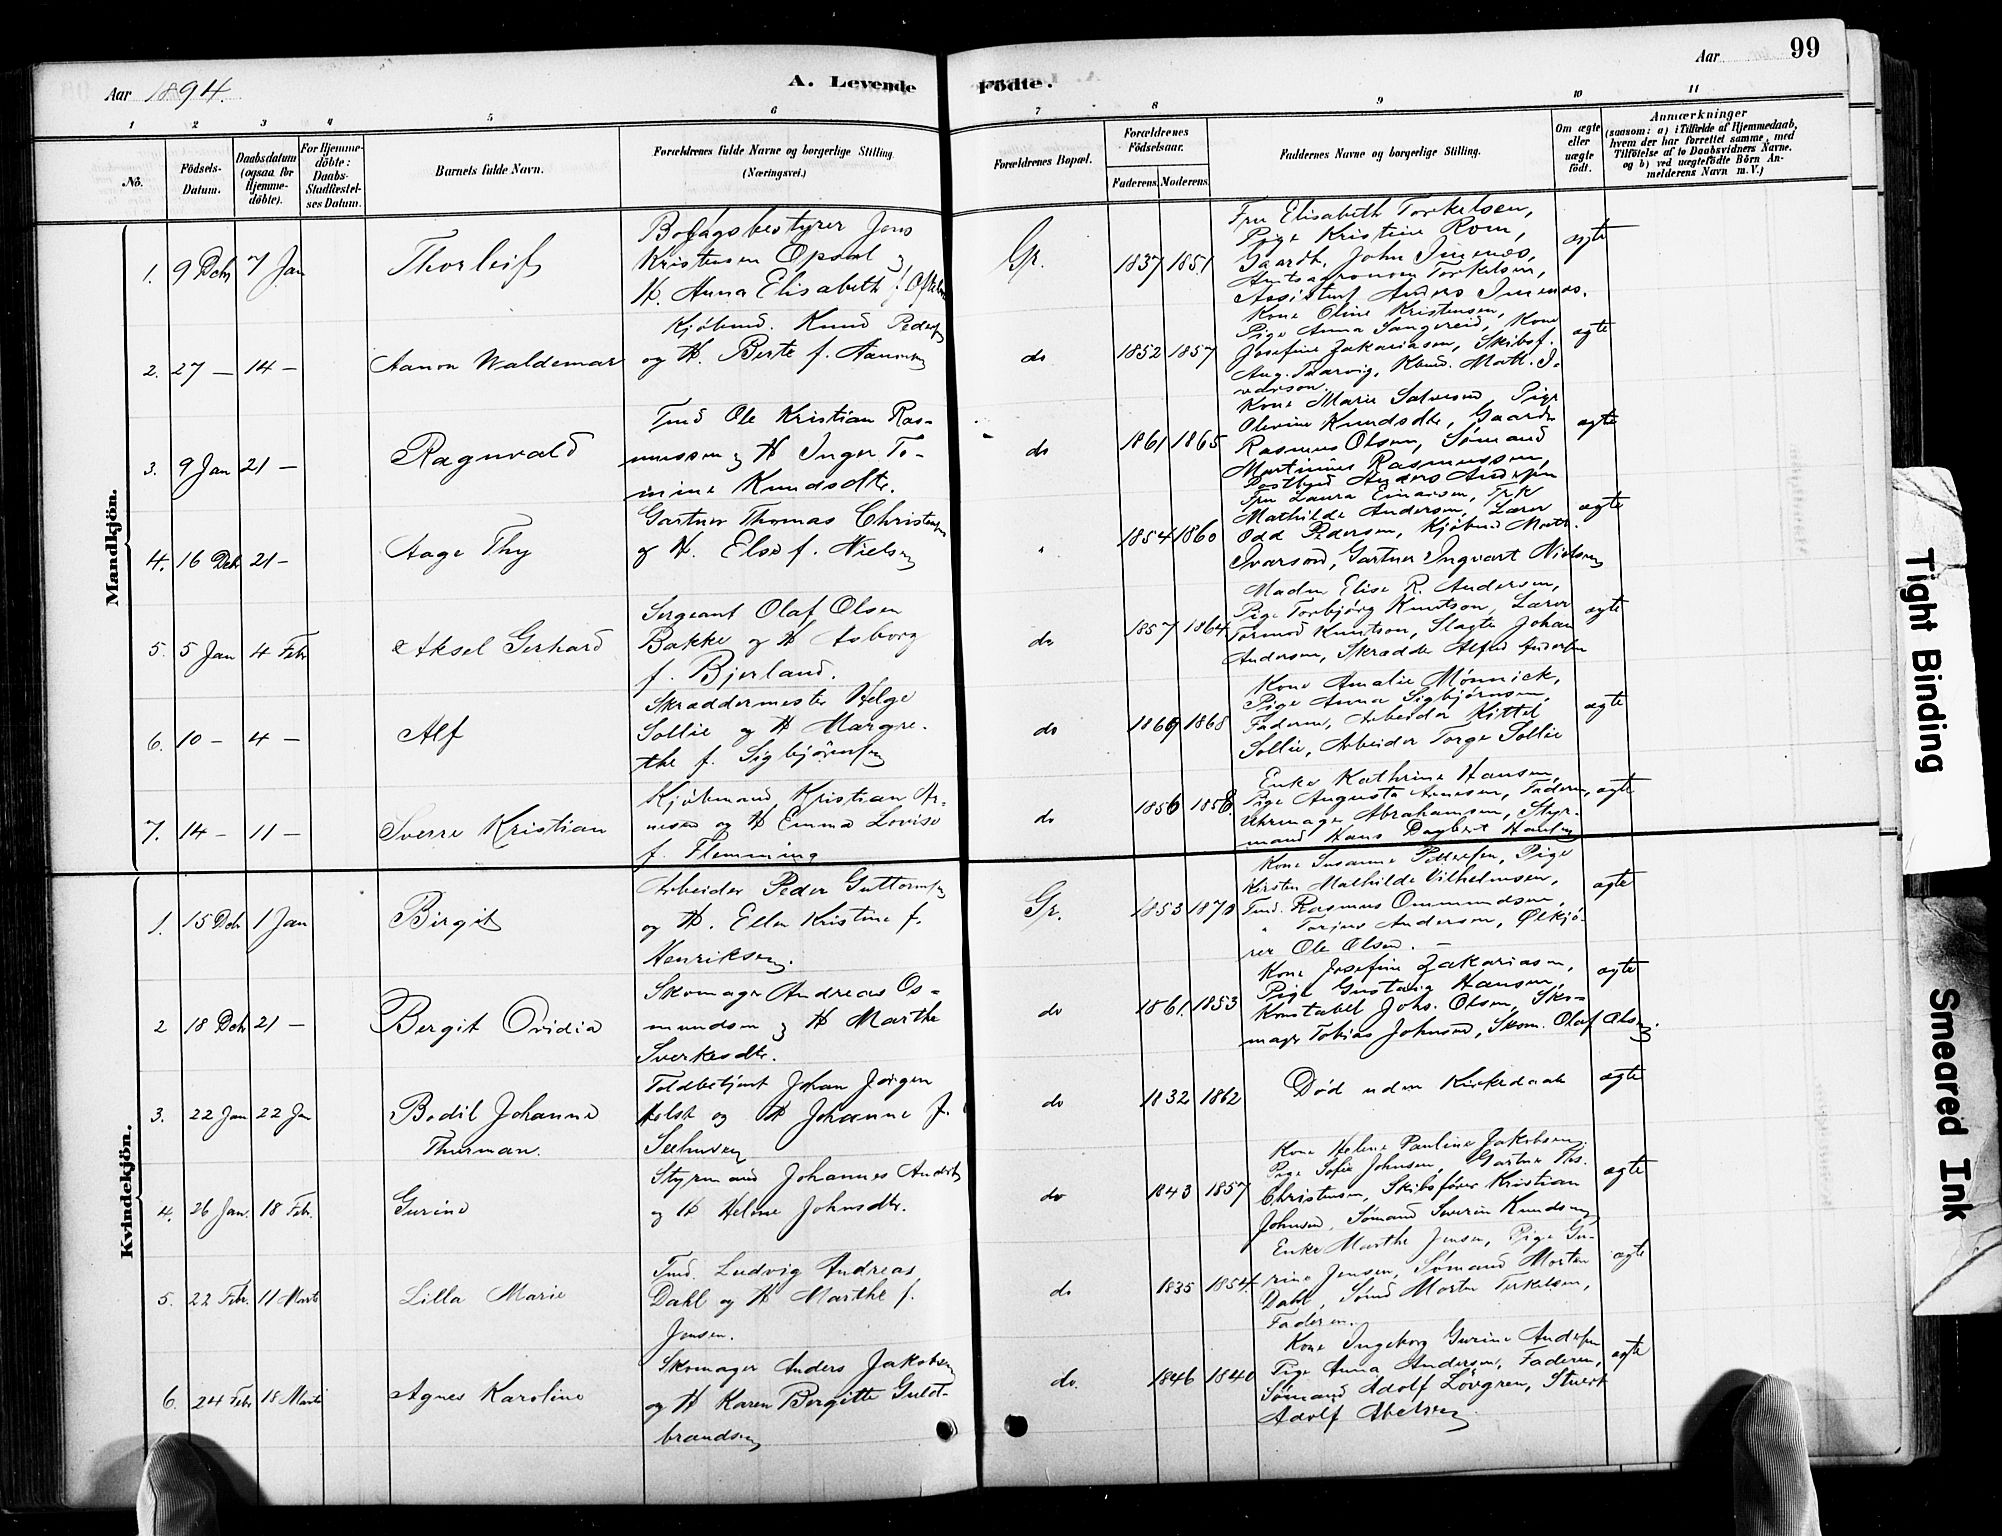 Aar 1894.
A. Levende
Födte.
Aar
99
1 2 3 4 5 6 7 8 9 10 11
No.
Födsels-
Datum.
Daabsdatum
(ogsaa for
Hjemme-
döbte).
For Hjemme-
döbte:
Daabs-
Stadfæstel-
ses Datum.
Barnets fulde Navn.
Forældrenes fulde Navne og borgerlige Stilling.
(Næringsvei.)
Forældrenes Bopæl.
Forældrenes
Födselsaar.
Faderens. Moderens.
Faddernes Navne og borgerlige Stilling.
Om ægte
eller
uægte
födt.
Anmærkninger
(saasom: a) i Tilfælde af Hjemmedaab,
hvem der har forrettet samme, med
Tilföielse af to Daabsvidners Navne.
og b) ved uægtefödte Börn An-
melderens Navn m. V.)
Mandkjön.
1. 9 Dcbr 7 Jan
Thorleif
Kristensen Opdal og
H. Anna Elisabeth f.
Gr.
1837 1851
Fru Elisabeth Torkelsen,
Pige Kristine Rom,
Gaardb. John Imenes,
Amtsagronom Torkelsen,
Assistent Anders Imenes.
ægte
2. 27 — 14 —
Aanon Waldemar
Kjøbmd. Knud Peders
og H. Berte f. Aanons
do
1852 1857
Kone Oline Kristensen,
Pige Anna Langereid, Kone
Josefine Zakariasen, Skibsf.
Aug. Taarvig, Kbmd. Math. I-
varson.
ægte
3. 9 Jan 21 —
Ragnvald
Tmd Ole Kristian Ras-
mussen og H Inger To-
mine Knudsdtr.
do
1861 1865
Kone Marie Salvesen, Pige
Olevine Knudsdtr, Gaardb
Rasmus Olsen, Sømand
Martinius Rasmussen,
Postbud Anders Andersen
ægte
4. 16 Dcbr 21 —
Aage Thy
Gartner Thomas Christensen
og H. Else f. Nielsen
"
1854 1860
Fru Laura Einarsen, Frk
Mathilde Andersen, Lærer
Odd Pedersen, Kjøbmd Math.
Ivarson, Gartner Ingvart Nielsen
ægte
5. 5 Jan 4 Febr
Aksel Gerhard
Sergeant Olaf Olsen
Bakke og H Asborg
f. Bjerland.
do
1857 1864
Madm Elise R. Andersen,
Pige Torbjørg Knutson, Lærer
Tormod Knutson, Slagter Johan
Andersen, Skrædder Alfred Andersen
ægte
6. 10 — 4 —
Alf
Skræddermester Helge
Sollie og H Margre-
the f. Sigbjørnsen
do
1869 1868
Kone Amalie Mønnick,
Pige Anna Sigbjørnsen,
Faderen, Arbeider Kittel
Sollie, Arbeider Torge Sollie
ægte
7. 14 — 11 —
Sverre Kristian
Kjøbmand Kristian Ar-
nesen og H Emma Lovise
f. Flemming
do
1856 1858.
Enke Kathrine Hansen,
Pige Augusta Arnesen, Faderen,
Uhrmager Abrahamsen, Styr-
mand Hans Dagbert Hansen
ægte
Kvindekjön.
1. 15 Dcbr 1 Jan
Birgit
Arbeider Peder Guttormsen
og H. Ellen Kristine f.
Henriksen.
Gr.
1853 1870
Kone Susanne Pettersen, Pige
Kirsten Mathilde Vilhelmsen,
Tmd. Rasmus Ommundsen,
" Torjus Andersen, Ølkjø-
rer Ole Olsen. —
ægte
2 18 Dcbr 21 —
Bergit Ovidia
Skomager Andreas Os-
mundsen og H Marthe
Sverkesdtr.
do
1861. 1853
Kone Josefine Zakariasen,
Pige Gustavig Hansen,
Konstabel Johs. Olsen, Sko-
mager Tobias Johnsen, Skom. Olaf Olsen.
ægte
3. 22 Jan 22 Jan
Bodil Johanne
Thurman.
Toldbetjent Johan Jørgen
Holst og H Johanne f.
do
1832 1862
Død uden Kirkedaab
ægte
4. 26 Jan. 18 Febr.
Gurine
Styrmand Johannes Anders
og H Helene Johnsdtr.
do
1843 1857
Kone Helene Pauline Jakobsen,
Pige Sofie Johnsen, Gartner Ths.
Christensen, Skibsfører Kristian
Johnsen, Sømand Severin Knudsen
ægte
5. 22 Febr. 11 Marts
Lilla Marie
Tmd. Ludvig Andreas
Dahl og H Marthe f.
Jensen.
do
1835 1854.
Enke Marthe Jensen, Pige Gu-
rine Jensen, Sømand Morten
Dahl, Sømd Morten Terkelsen,
Faderen.
ægte
6. 24 Febr 18 Marts
Agnes Karoline
Skomager Anders Jakobsen
og H Karen Bergitte Guld-
brandsen
do.
1846 1840
Kone Ingeborg Gurine Andersen
Pige Anna Andersen, Faderen,
Sømand Adolf Lövgren, Stuert
Adolf Abelsen
ægte
Tight Binding
Smeared Ink